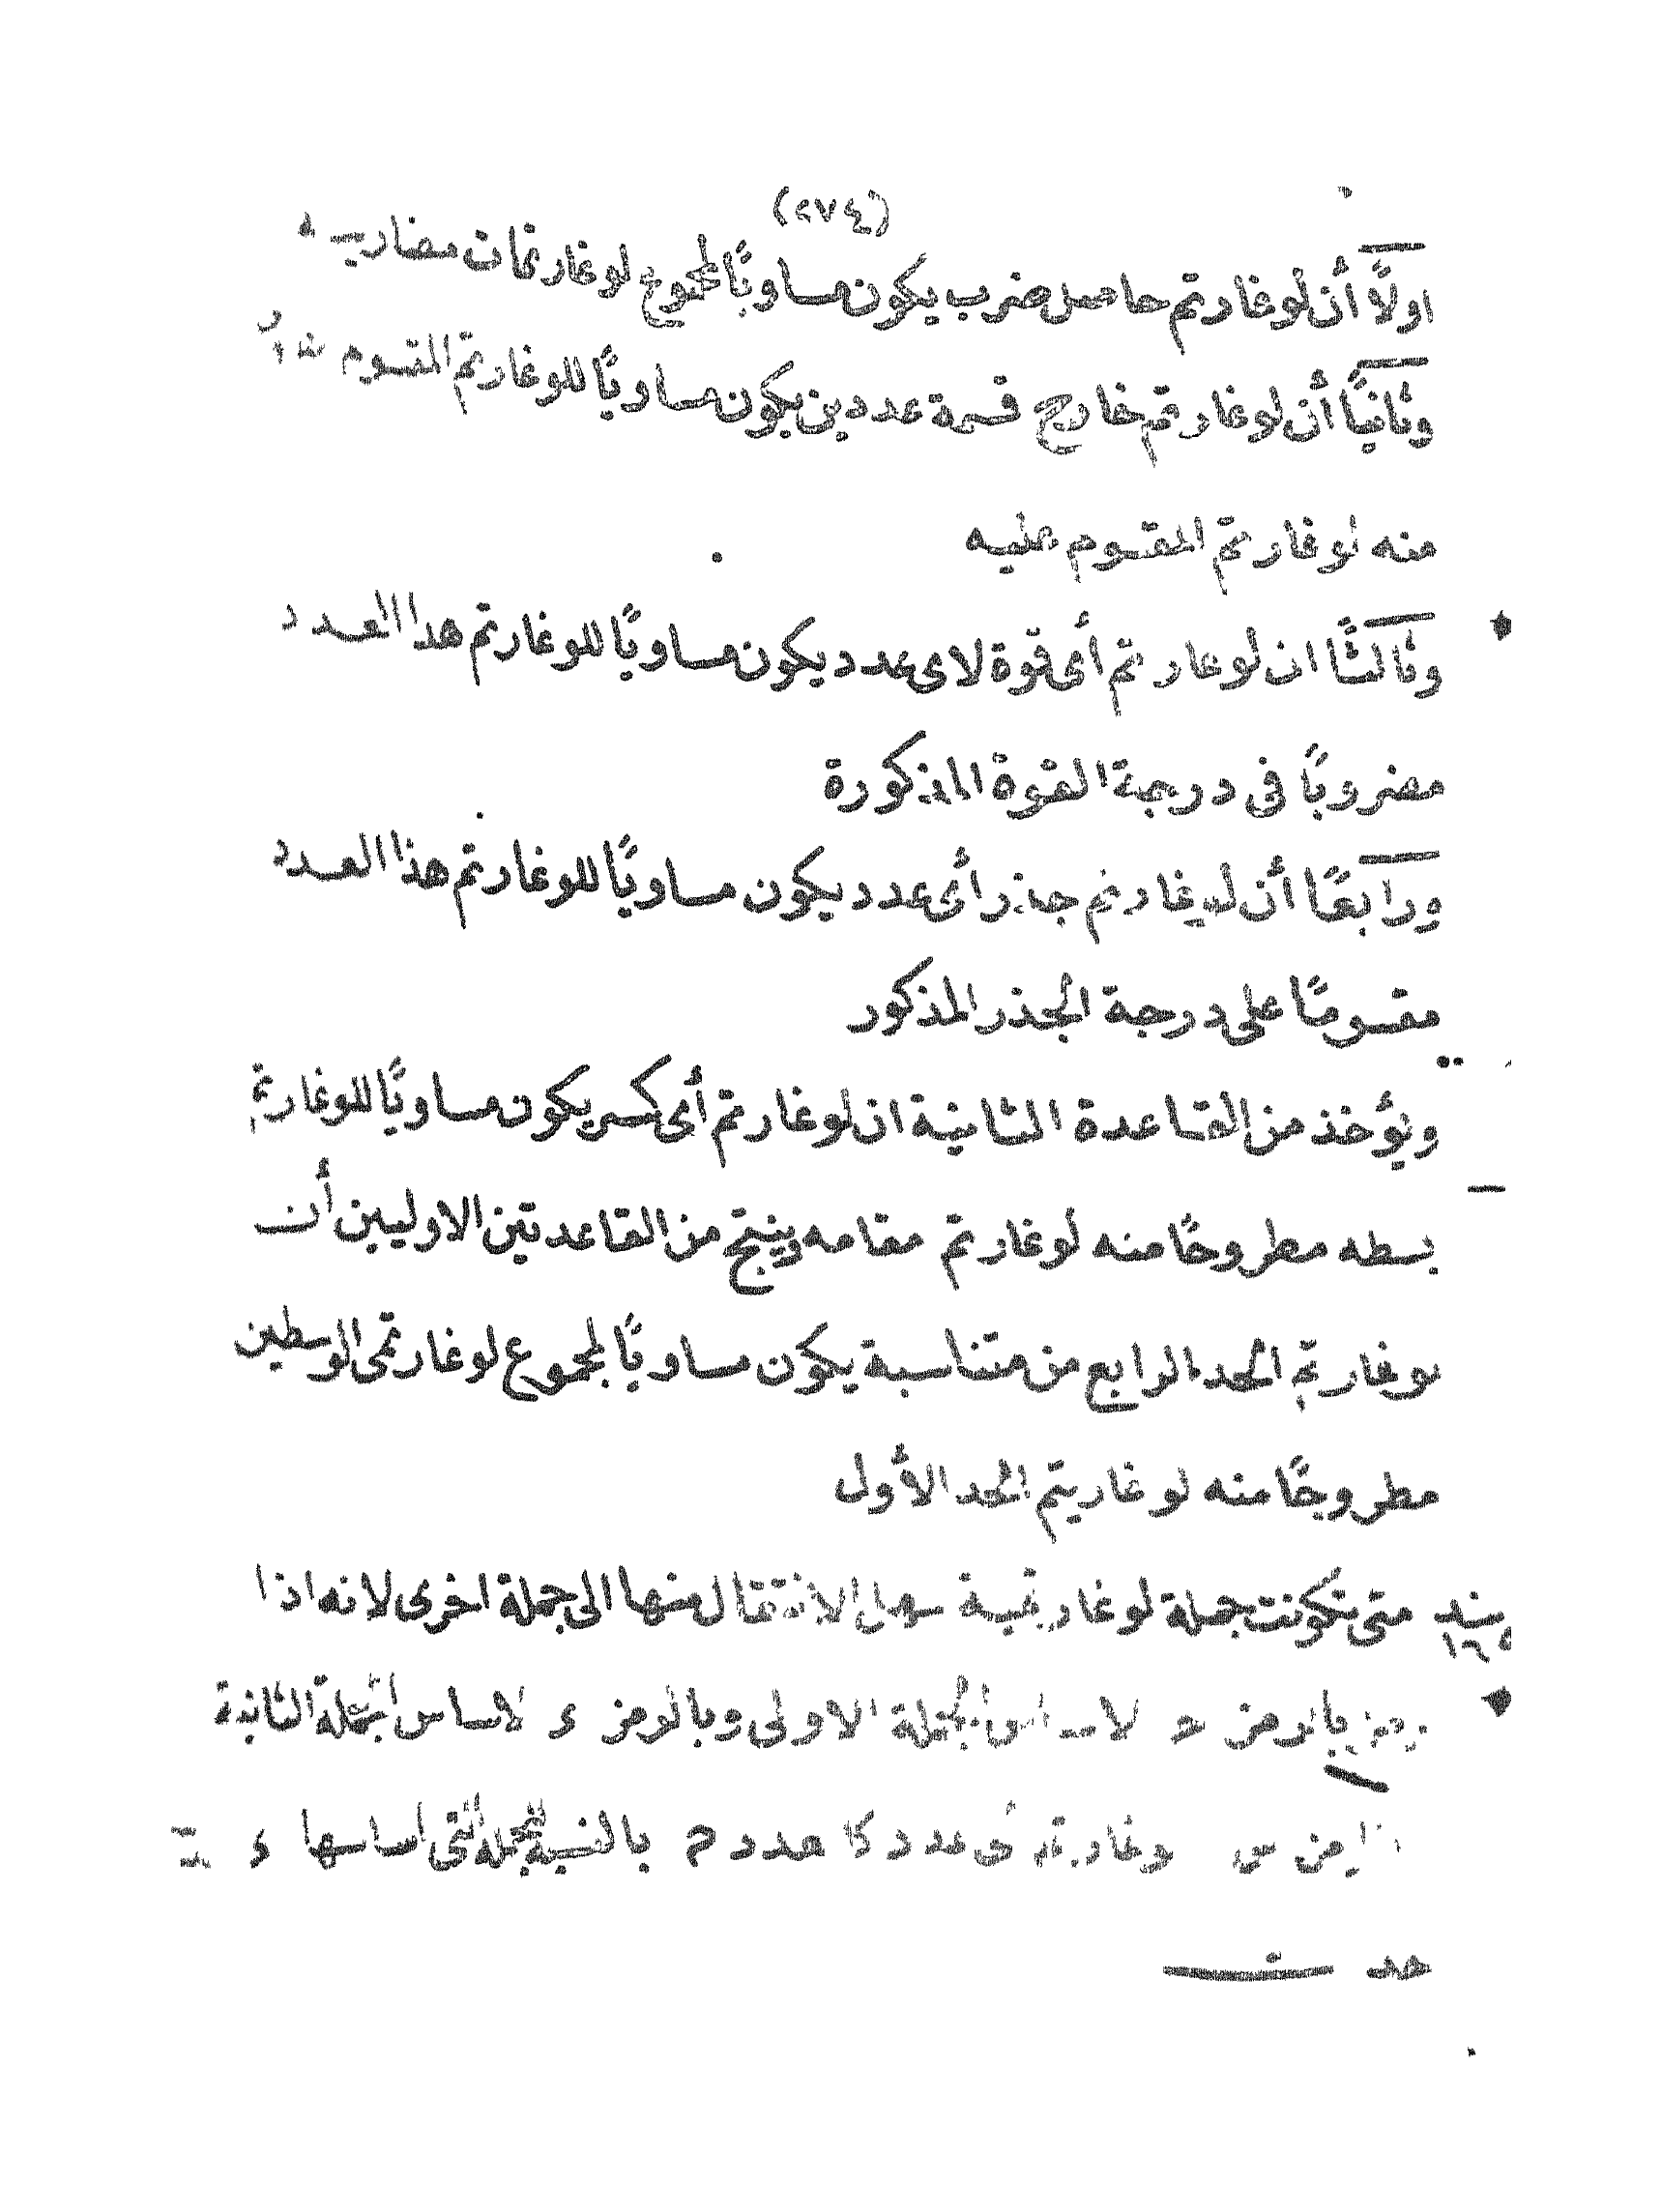 (٢٧٤)
اولاً أن لوغارتم حاصل ضرب يكون مساويًا لمجموع لوغارتمات مضاريبه
وثانيًا أن لوغارتم خارج قسمة عددين يكون مساويًا للوغارتم المقسوم
منه لوغارتم المقسوم عليه
وثالثًا ان لوغارتم أى قوة لاى عدد يكون مساويًا للوغارتم هذا العدد
مضروبًا فى درجة القوة المذكورة
ورابعًا أن لوغارتم جذر أى عدد يكون مساويًا للوغارتم هذا العدد
مقسومًا على درجة الجذر المذكور
ويؤخذ من القاعدة الثانية ان لوغارتم أى كسر يكون مساويًا للوغارتم
بسطه مطروحًا منه لوغارتم مقامه وينتج من القاعدتين الاوليين أن
لوغارتم الحد الرابع من متناسبة يكون مساويًا لمجموع لوغارتمى الوسطين
مطروحًا منه لوغاريتم الحد الأول
بند ١٦٥ متى تكونت جملة لوغاريتمية سهل الانتقال منها الى جملة اخرى لانه اذا
بالرمز ح لاساس الجملة الاولى وبالرمز ء لاساس الجملة الثانية
لوغارتم أى عدد كا عدد م بالنسبة للجملة التى اساسها ء
حدث